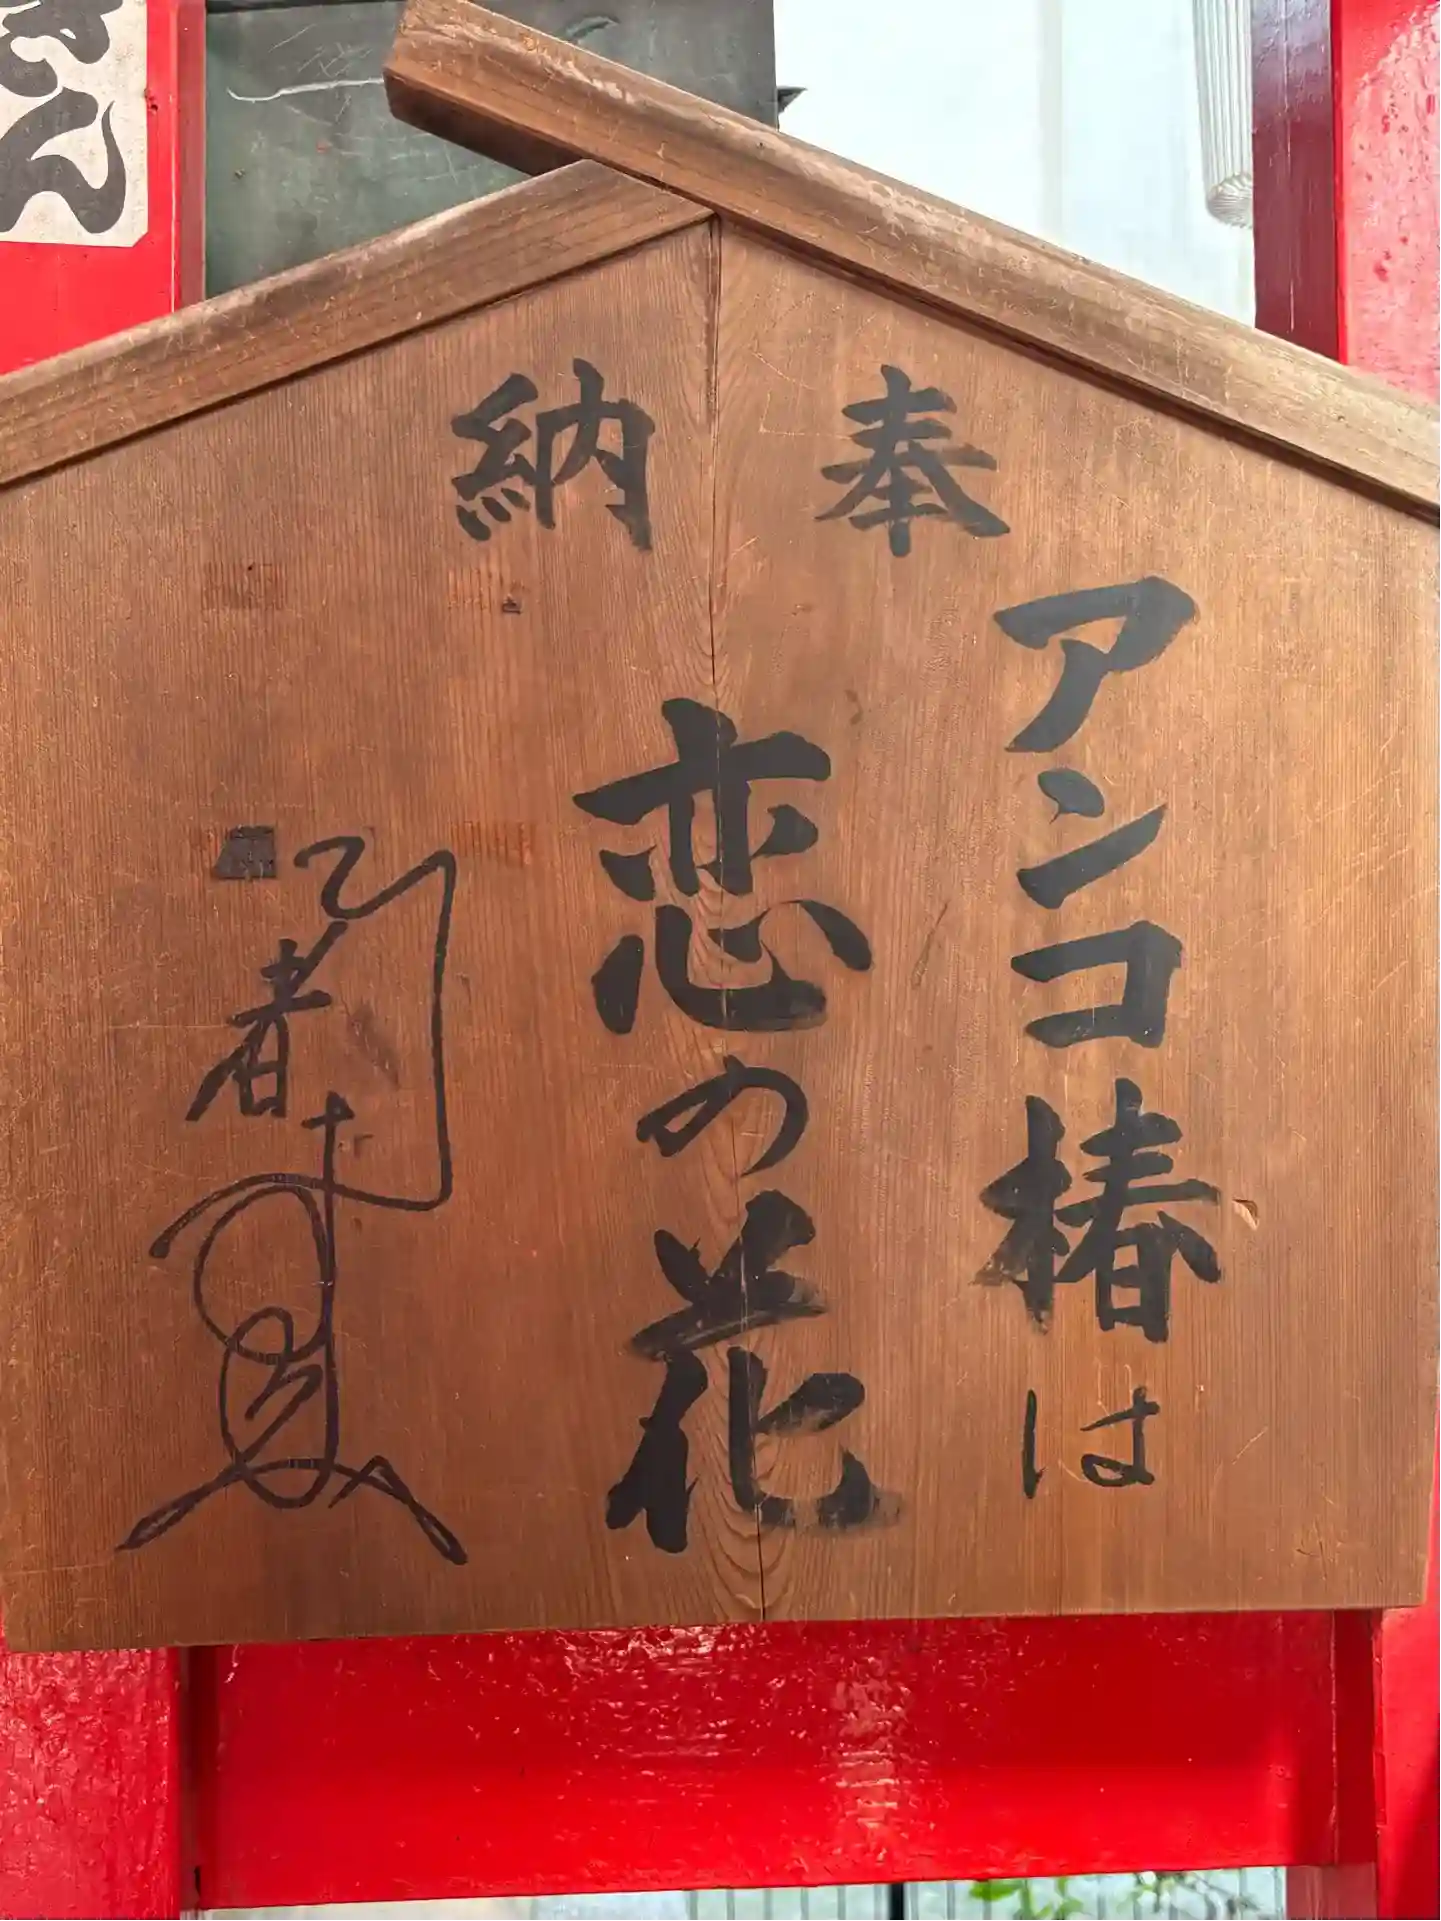 奉納
アンコ椿は
恋の花
都はるみ
きん